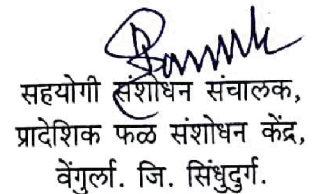 सहयोगी संशोधन संचालक,
प्रादेशिक फळ संशोधन केंद्र,
वेंगुर्ला. जि. सिंधुदुर्ग.